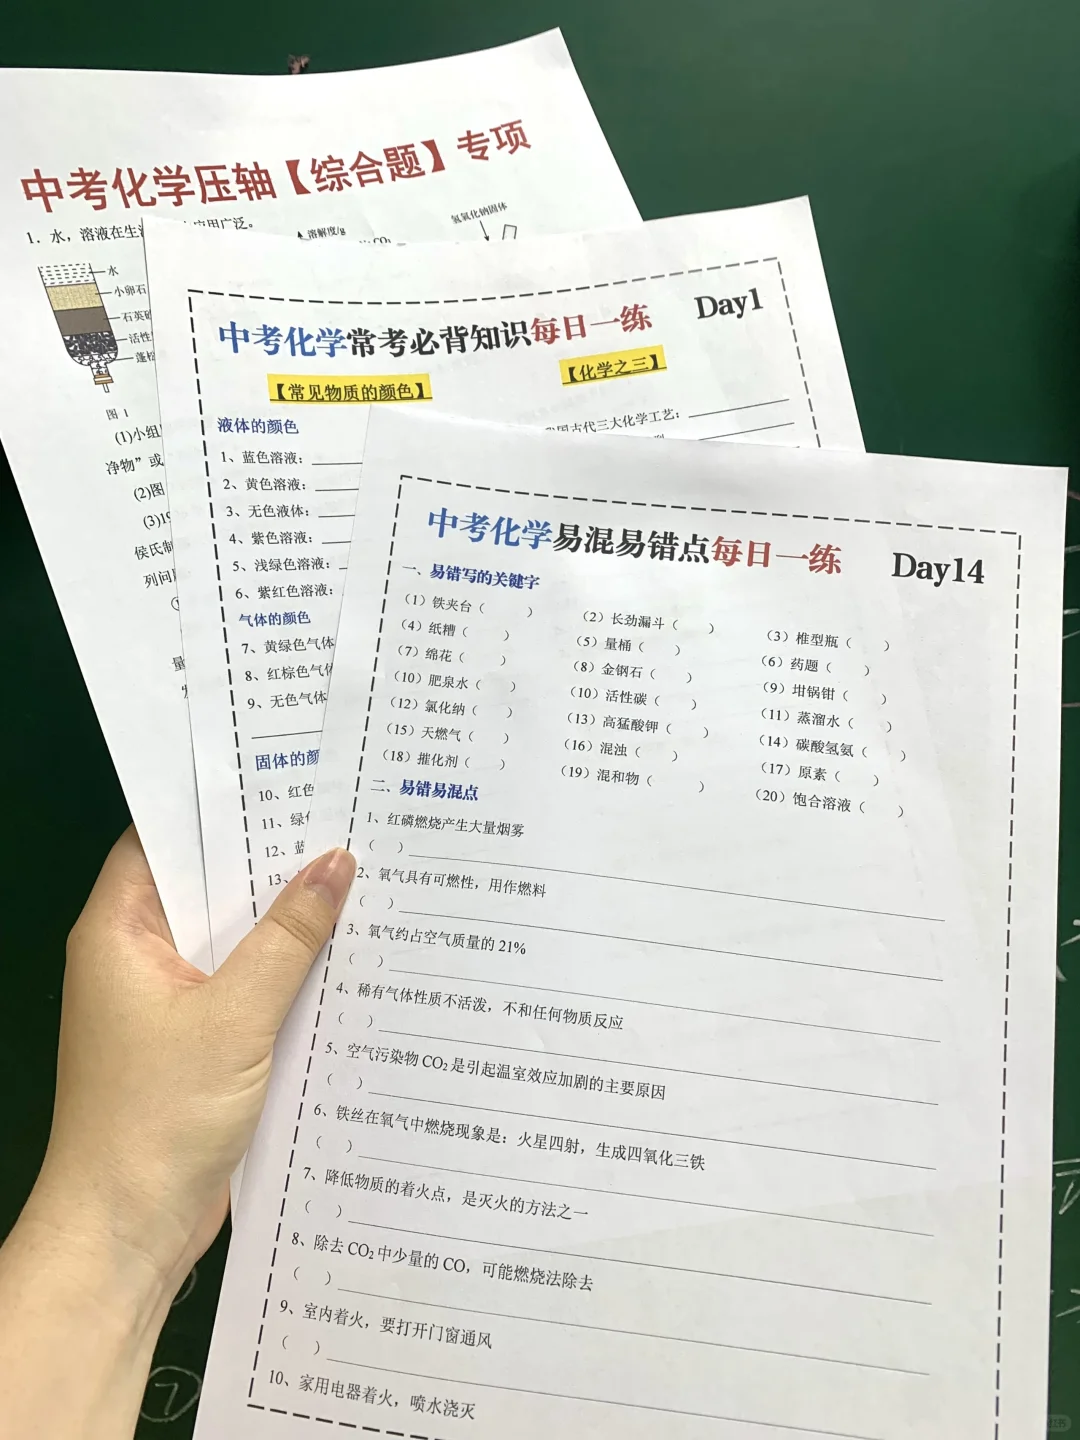 中考化学压轴【综合题】专项
1．水，溶液在生
应用广泛。
溶解度/g
CO₂
氢氧化钠固体
水
小卵石
石英砂
活性
蓬松
图 1
(1)小组
净物”或
(2)图
(3)19
侯氏制
列问
量
中考化学常考必背知识每日一练 Day1
【常见物质的颜色】
【化学之三】
国古代三大化学工艺：
液体的颜色
1、蓝色溶液：
2、黄色溶液：
3、无色液体：
4、紫色溶液：
5、浅绿色溶液：
6、紫红色溶液：
气体的颜色
7、黄绿色气体
8、红棕色气体
9、无色气体
固体的颜
10、红色
11、绿色
12、蓝
13、
中考化学易混易错点每日一练 Day14
一、易错写的关键字
（1）铁夹台（ ） （2）长劲漏斗（ ） （3）椎型瓶（ ）
（4）纸糟（ ） （5）量桶（ ） （6）药题（ ）
（7）绵花（ ） （8）金钢石（ ） （9）坩锅钳（ ）
（10）肥泉水（ ） （10）活性碳（ ） （11）蒸溜水（ ）
（12）氯化纳（ ） （13）高猛酸钾（ ） （14）碳酸氢氨（ ）
（15）天燃气（ ） （16）混浊（ ） （17）原素（ ）
（18）摧化剂（ ） （19）混和物（ ） （20）饱合溶液（ ）
二、易错易混点
1、红磷燃烧产生大量烟雾
（ ）
2、氧气具有可燃性，用作燃料
（ ）
3、氧气约占空气质量的 21%
（ ）
4、稀有气体性质不活泼，不和任何物质反应
（ ）
5、空气污染物 CO₂ 是引起温室效应加剧的主要原因
（ ）
6、铁丝在氧气中燃烧现象是：火星四射，生成四氧化三铁
（ ）
7、降低物质的着火点，是灭火的方法之一
（ ）
8、除去 CO₂ 中少量的 CO，可能燃烧法除去
（ ）
9、室内着火，要打开门窗通风
（ ）
10、家用电器着火，喷水浇灭
7